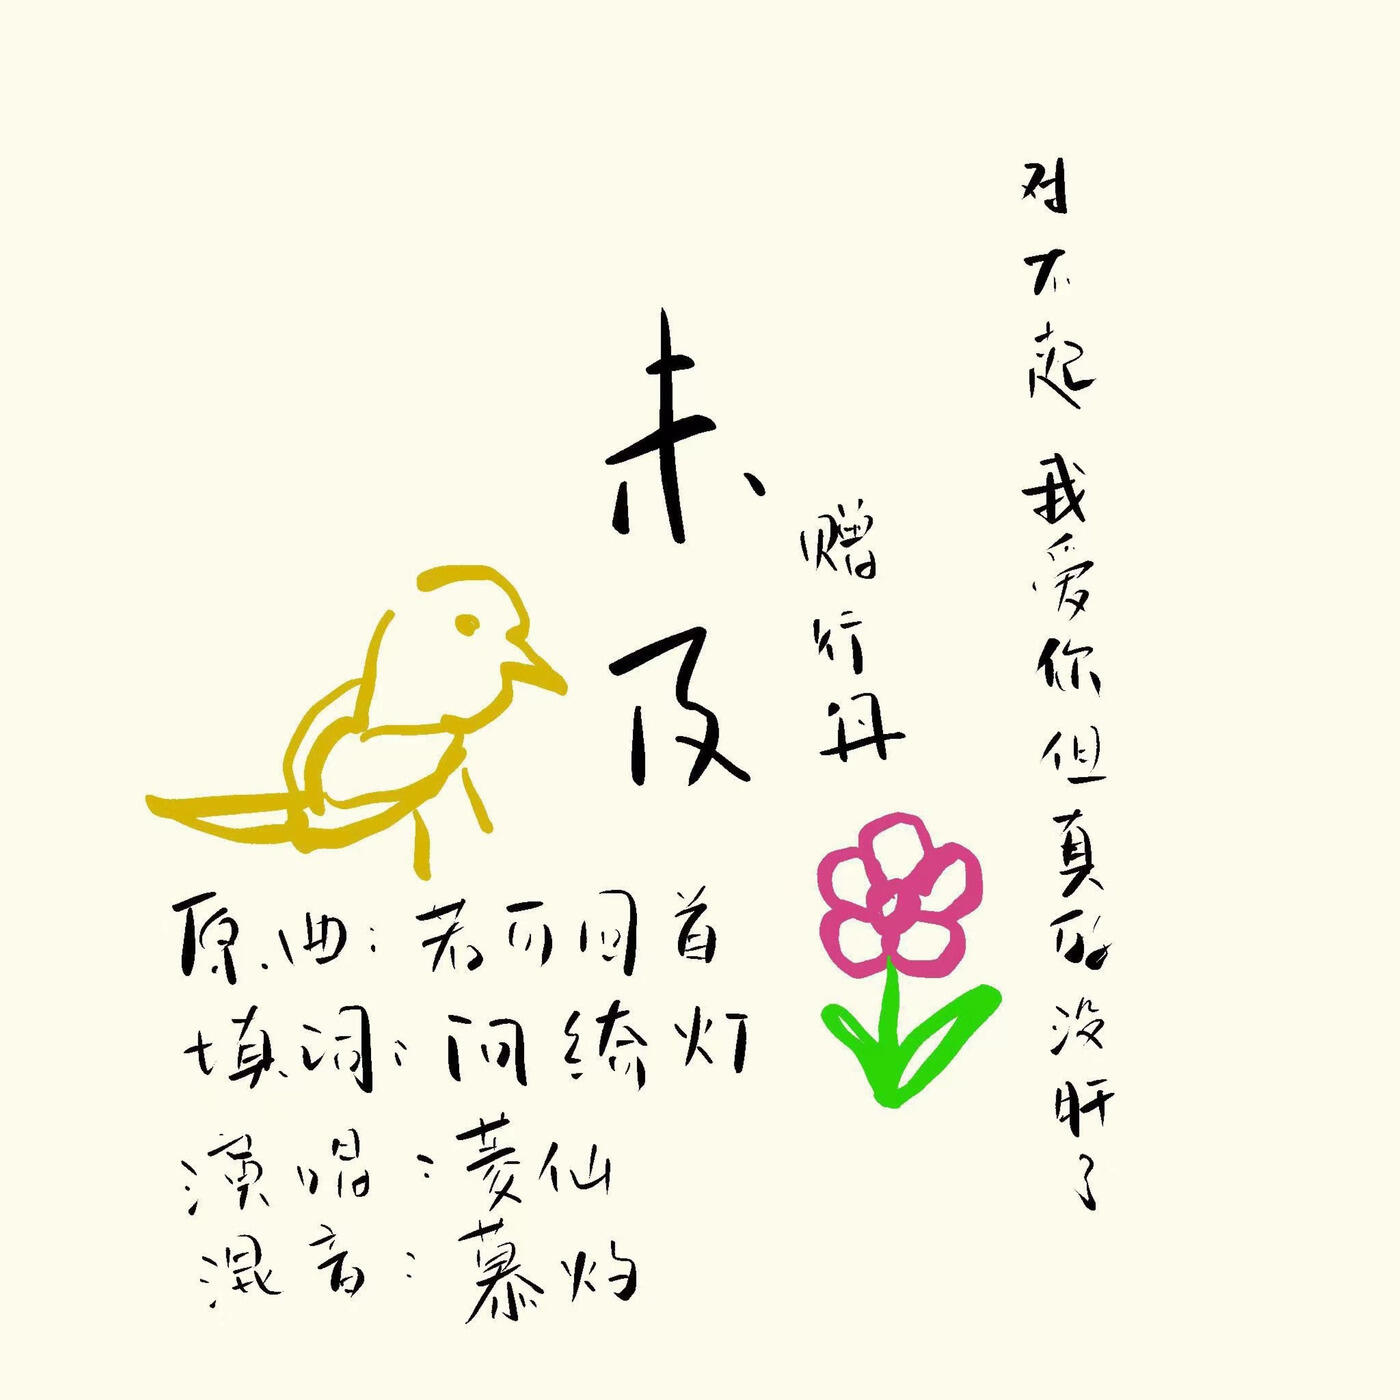 对不起 我爱你但真的没肝了
未及
赠行冉
原曲:若可回首
填词:问绮灯
演唱:菱仙
混音:慕灼